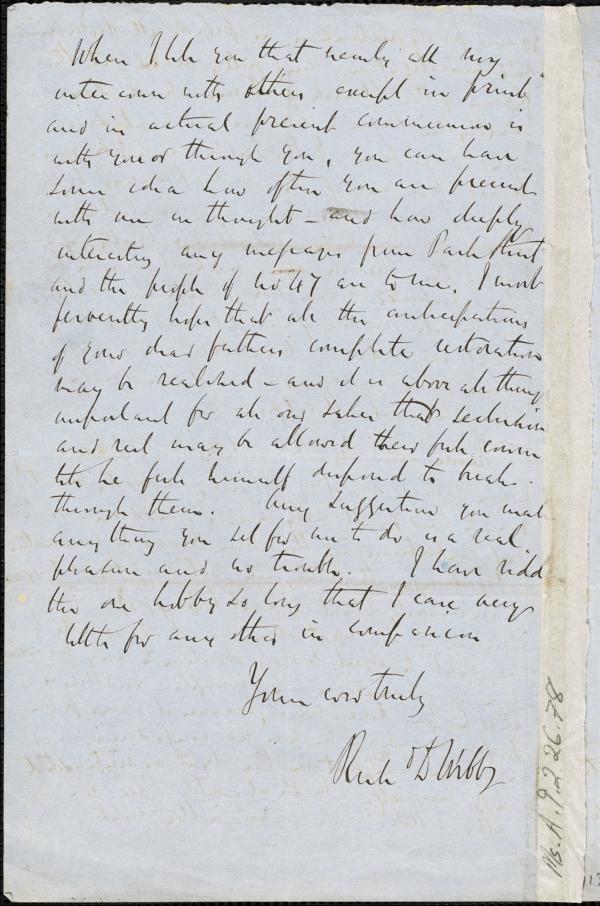 When I tell you that nearly all my
intercourse with others except in print
and in actual present communion is
with you or through you, you can have
some idea how often you are present
with me in thought – and how deeply
interesting any messages from Park Street
and the people of No 47 are to me. I most
fervently hope that all the anticipations
of your dear father's complete restoration
may be realized – and it is above all things
important for all our sakes that seclusion
and rest may be allowed their full course
till he feels himself disposed to break
through them. Any suggestion you make
anything you set for me to do is a real
pleasure and no trouble. I have ridden
the one hobby so long that I care very
little for any other in comparison
Yours ever truly
Richd D Webb
Ms. A. 9. 2. 26. 78